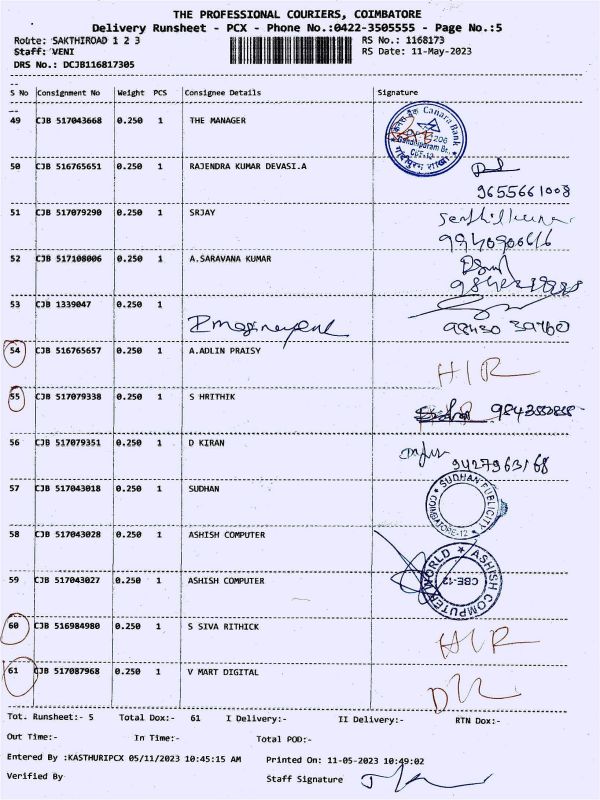 THE PROFESSIONAL COURIERS, COIMBATORE
Delivery Runsheet - PCX - Phone No.:0422-3505555 - Page No.:5
Route: SAKTHIROAD 1 2 3 RS No.: 1168173
Staff: VENI RS Date: 11-May-2023
DRS No.: DCJB116817305
S No Consignment No Weight PCS Consignee Details Signature
49 CJB 517043668 0.250 1 THE MANAGER
Canara Bank
Gandhipuram Br.
CBE-12
50 CJB 516765651 0.250 1 RAJENDRA KUMAR DEVASI.A
9655661008
51 CJB 517079290 0.250 1 SRJAY Senthilkumar
52 CJB 517108006 0.250 1 A.SARAVANA KUMAR
53 CJB 1339047 0.250 1
98430 39760
54 CJB 516765657 0.250 1 A.ADLIN PRAISY H/R
55 CJB 517079338 0.250 1 S HRITHIK
56 CJB 517079351 0.250 1 D KIRAN
9427963168
57 CJB 517043018 0.250 1 SUDHAN SUDHAN PUBLICITY COIMBATORE-12
58 CJB 517043028 0.250 1 ASHISH COMPUTER
59 CJB 517043027 0.250 1 ASHISH COMPUTER ASHISH COMPUTER WORLD CBE-12
60 CJB 516984980 0.250 1 S SIVA RITHICK
61 CJB 517087968 0.250 1 V MART DIGITAL
Tot. Runsheet:- 5 Total Dox:- 61 I Delivery:- II Delivery:- RTN Dox:-
Out Time:- In Time:- Total POD:-
Entered By :KASTHURIPCX 05/11/2023 10:45:15 AM Printed On: 11-05-2023 10:49:02
Verified By Staff Signature